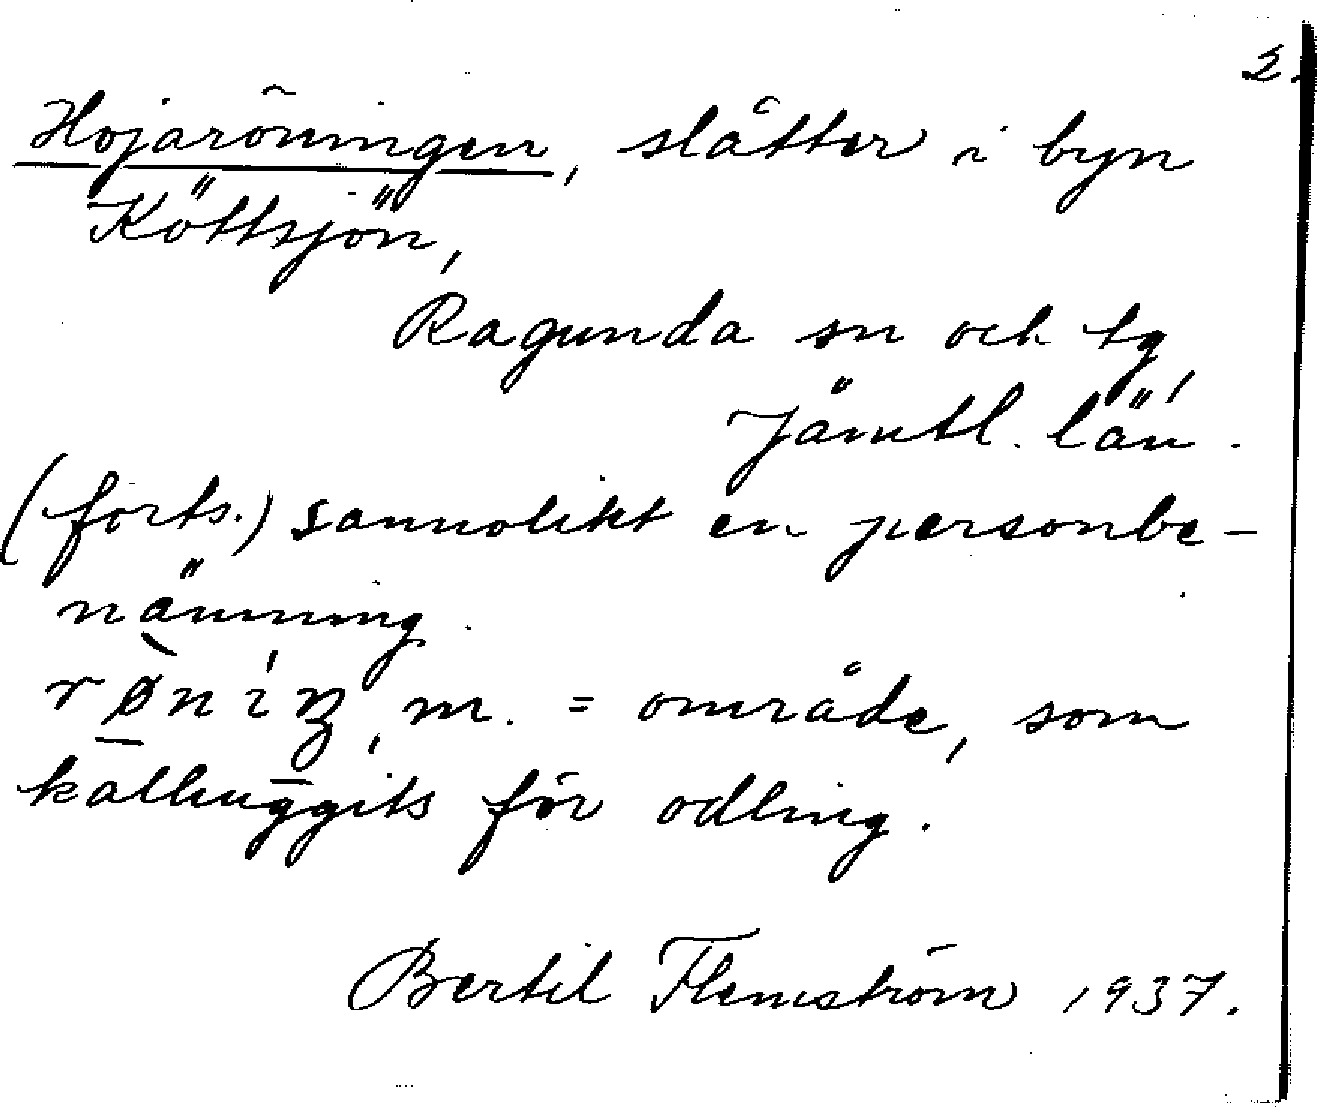 2.
Hojaröningen, slåtter i byn
Köttsjön,
Ragunda sn och tg,
Jämtl. län.
(forts.) sannolikt en personbe-
nämning.
rø̱niŋ, m. = område, som
kalhuggits för odling.
Bertil Flemström 1937.